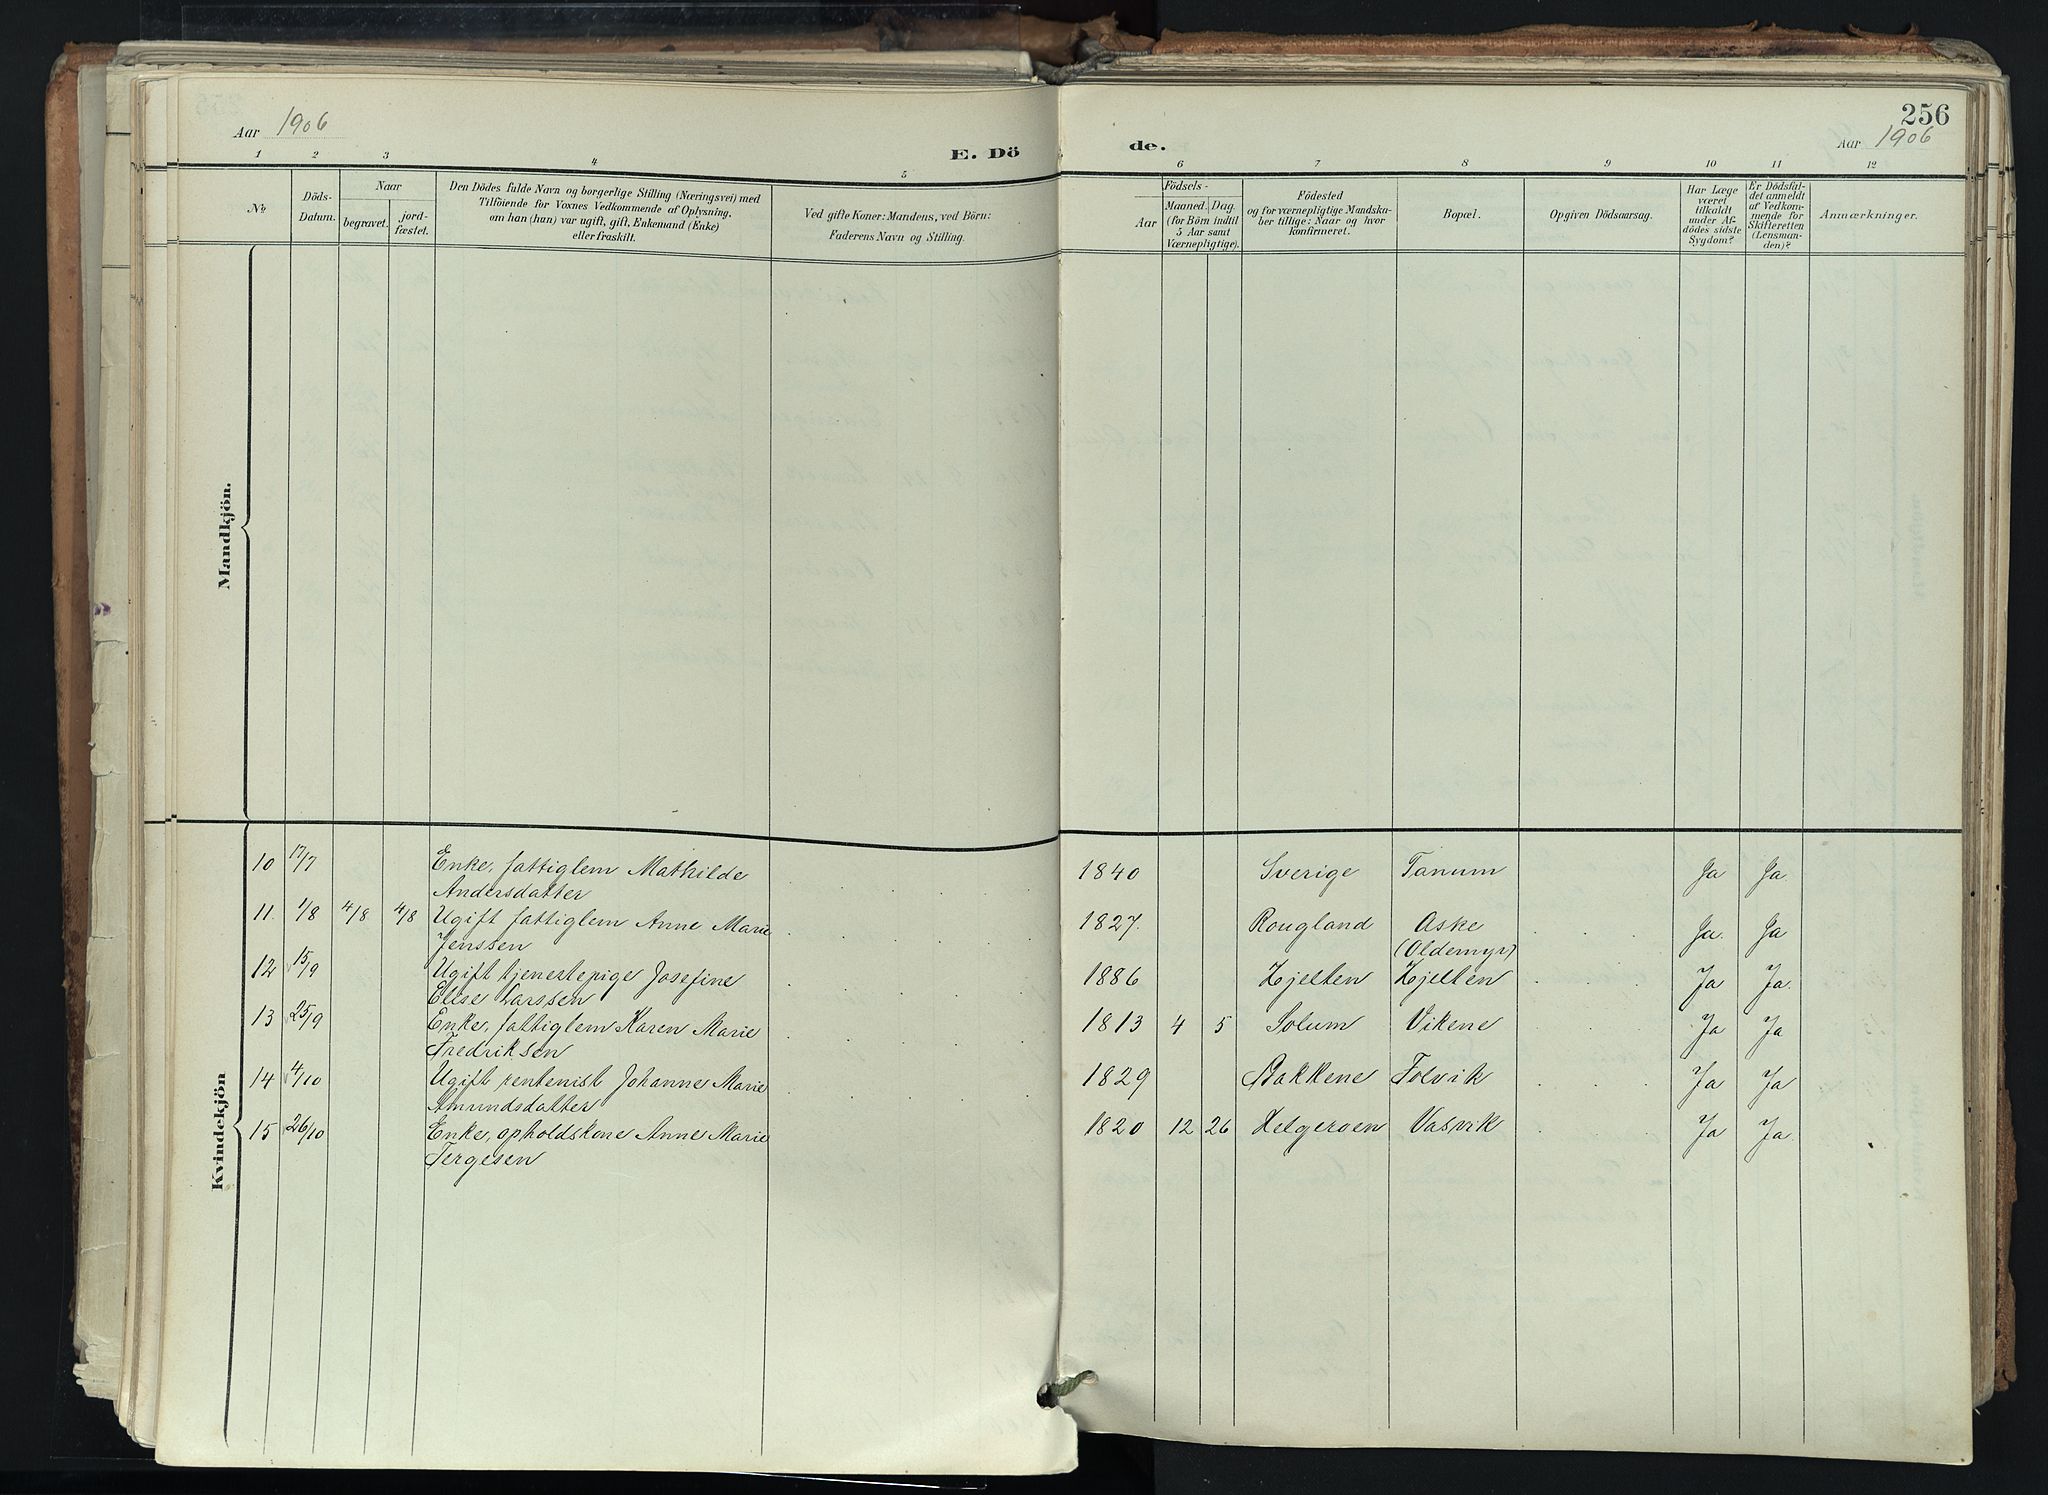 256
Aar 1906
E. Dö
de.
Aar 1906
1 2 3 4 5 6 7 8 9 10 11 12
No.
Döds-
Datum.
Naar
begravet.
jord-
fæstet.
Den Dödes fulde Navn og borgerlige Stilling (Næringsvei) med
Tilföiende for Voxnes Vedkommende af Oplysning,
om han (hun) var ugift, gift, Enkemand (Enke)
eller fraskilt.
Ved gifte Koner: Mandens, ved Börn:
Faderens Navn og Stilling.
Födsels-
Aar
Maaned. Dag.
(for Börn indtil
5 Aar samt
Værnepligtige).
Födested
og for værnepligtige Mandska-
ber tillige: Naar og hvor
konfirmeret.
Bopæl.
Opgiven Dödsaarsag.
Har Læge
været
tilkaldt
under Af-
dödes sidste
Sygdom?
Er Dödsfal-
det anmeldt
af Vedkom-
mende for
Skifteretten
(Lensman-
den)?
Anmærkninger.
Mandkjön.
Kvindekjön
10 17/7 Enke, fattiglem Mathilde 1840 Sverige Tanum Ja Ja.
Andersdatter
11. 1/8 4/8 4/8 Ugift fattiglem Anne Marie 1827. Rougland Aske Ja. Ja
Jenssen (Oldemyr)
12 15/9 Ugift tjenestepige Josefine 1886 Hjelten Hjelten Ja Ja.
Elise Larssen
13 25/9 Enke, fattiglem Karen Marie 1813 4 5 Solum Vikene Ja Ja
Fredriksen
14 4/10 Ugift rentenist Johanne Marie 1829 Bakkene Folvik Ja Ja
Amundsdatter
15 26/10 Enke, opholdskone Anne Marie 1820 12 26 Helgeroen Vasvik Ja Ja.
Tergesen